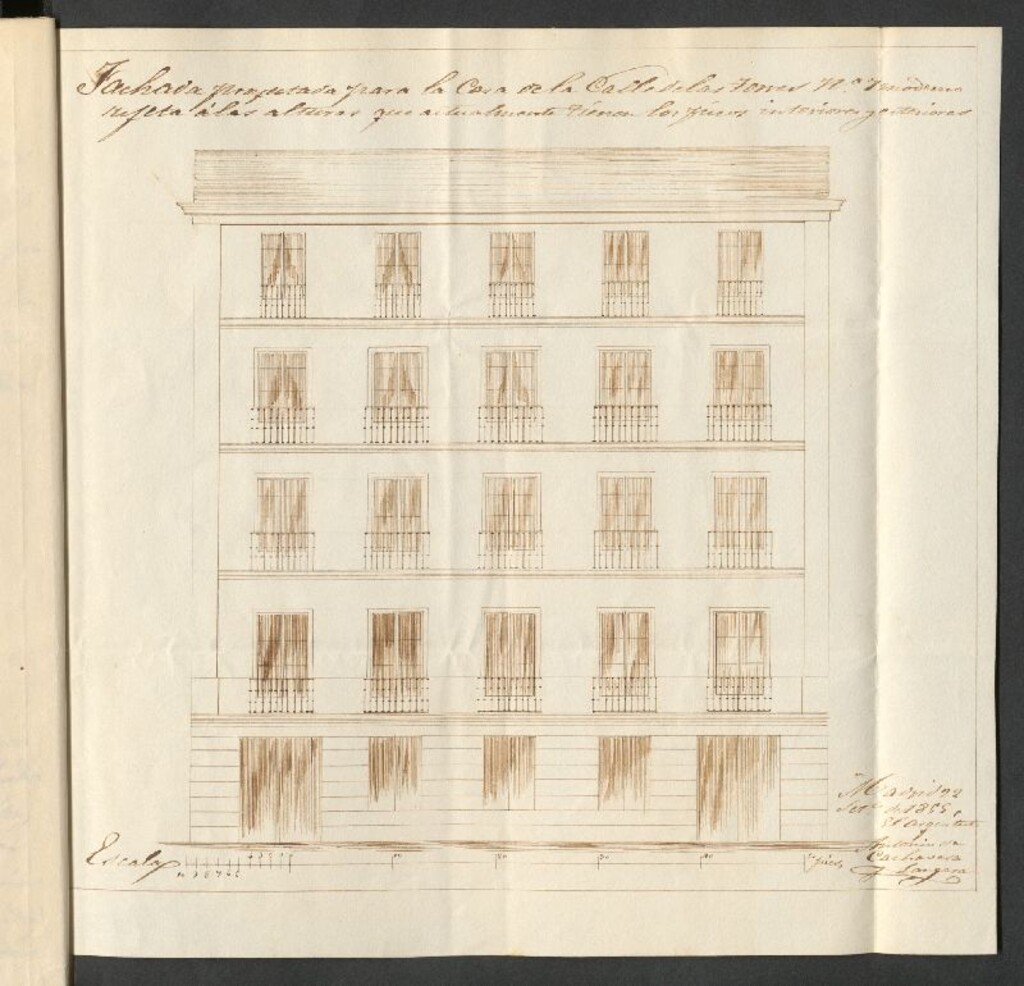 Fachada proyectada para la Casa de la Calle de las Torres N.º 7 moderno
sujeta á las alturas que actualmente tienen los pisos interiores y esteriores
Madrid 22
Set.e de 1855
El Arquitecto
Antonio de
Cachavera
y Langara
Escala
10 20 30 40 50 pies